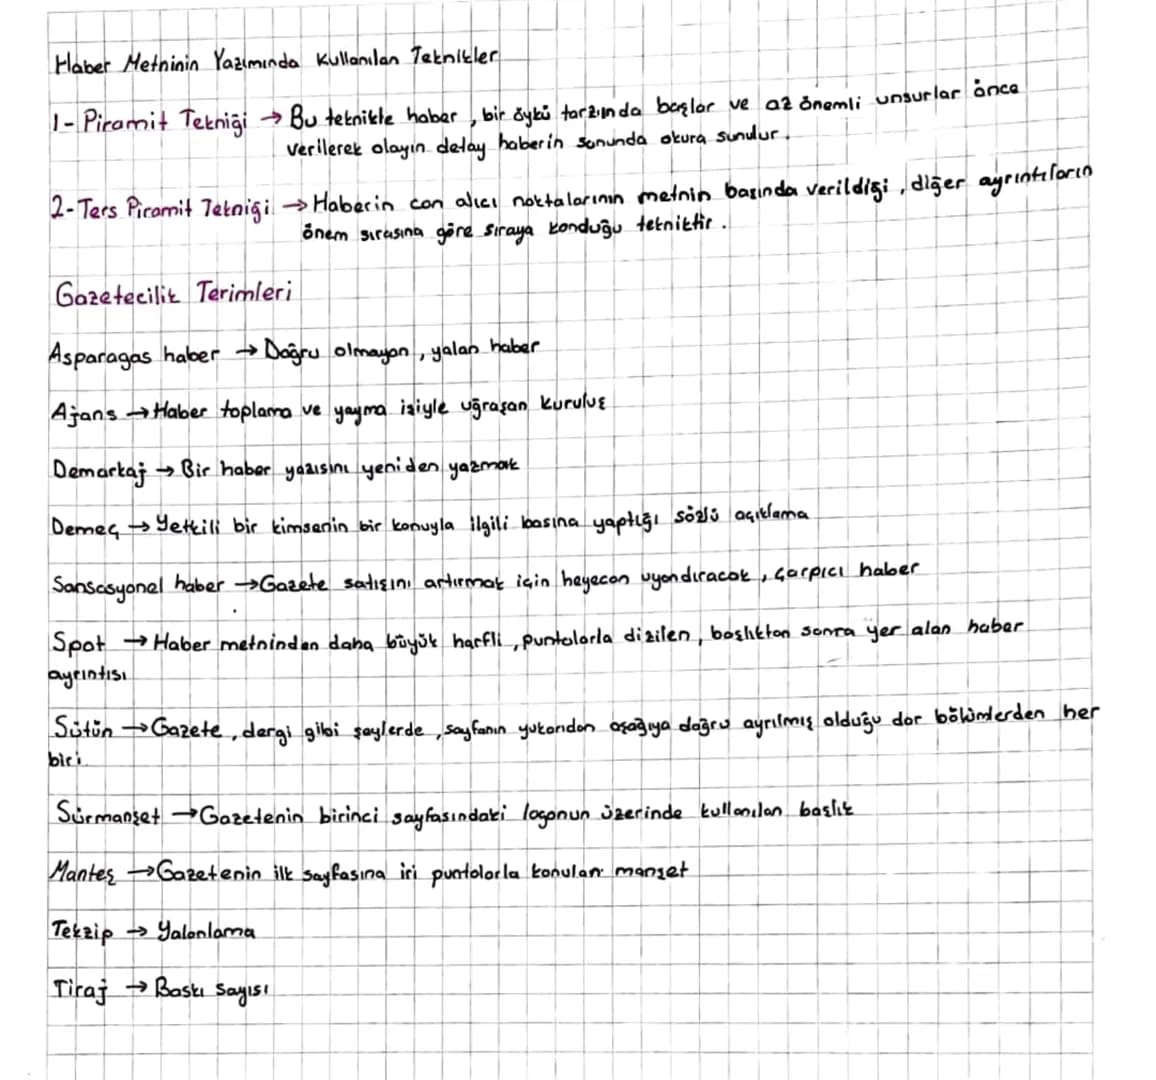 Haber Metninin Yazımında Kullanılan Teknikler
1- Piramit Tekniği → Bu teknikle haber, bir öykü tarzında başlar ve az önemli unsurlar önce
verilerek olayın detay haberin sonunda okura sunulur.
2- Ters Piramit Tekniği → Haberin can alıcı noktalarının metnin başında verildiği, diğer ayrıntıların
önem sırasına göre sıraya konduğu tekniktir.
Gazetecilik Terimleri
Asparagas haber → Doğru olmayan, yalan haber
Ajans → Haber toplama ve yayma işiyle uğraşan kuruluş
Demarkaj → Bir haber yazısını yeniden yazmak
Demeç → Yetkili bir kimsenin bir konuyla ilgili basına yaptığı sözlü açıklama
Sansasyonel haber → Gazete satışını artırmak için heyecan uyandıracak, çarpıcı haber
Spot → Haber metninden daha büyük harfli, puntolarla dizilen, başlıktan sonra yer alan haber
ayrıntısı
Sütün → Gazete, dergi gibi şeylerde, sayfanın yukarıdan aşağıya doğru ayrılmış olduğu dar bölümlerden her
biri
Sürmanşet → Gazetenin birinci sayfasındaki logonun üzerinde kullanılan başlık
Manteş → Gazetenin ilk sayfasına iri puntolarla konulan manşet
Tekzip → Yalanlama
Tiraj → Baskı sayısı